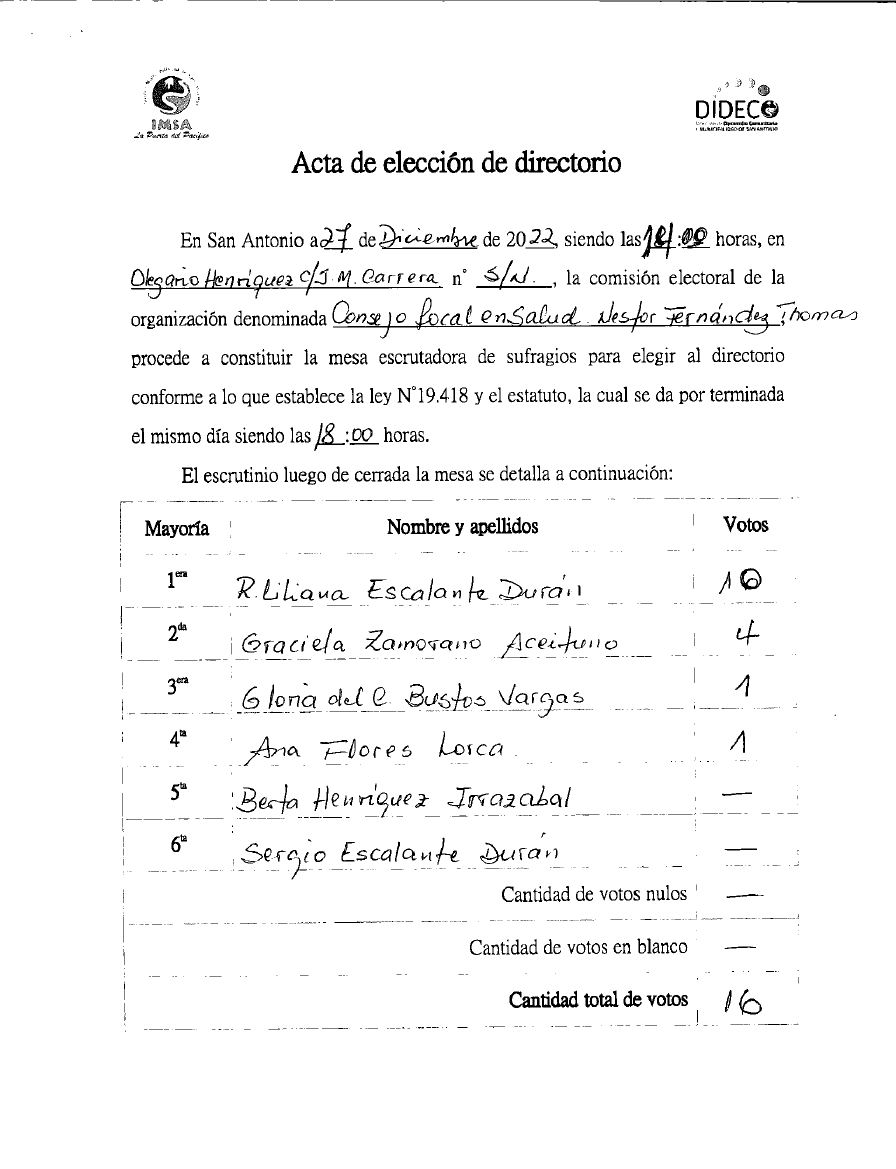 IMSA
La Puerta del Pacífico
DIDECO
Acta de elección de directorio
En San Antonio a 27 de Diciembre de 2022, siendo las :00 horas, en
Olegario Henríquez c/J.M. Carrera n° S/N. , la comisión electoral de la
organización denominada Consejo Local en Salud Nestor Fernández Thomas
procede a constituir la mesa escrutadora de sufragios para elegir al directorio
conforme a lo que establece la ley N°19.418 y el estatuto, la cual se da por terminada
el mismo día siendo las 18:00 horas.
El escrutinio luego de cerrada la mesa se detalla a continuación:
Mayoría Nombre y apellidos Votos
1era R. Liliana Escalante Durán 10
2da Graciela Zamorano Aceituno 4
3era Gloria del C. Bustos Vargas 1
4ta Ana Flores Lorca 1
5ta Berta Henríquez Irrazabal —
6ta Sergio Escalante Durán —
Cantidad de votos nulos —
Cantidad de votos en blanco —
Cantidad total de votos 16